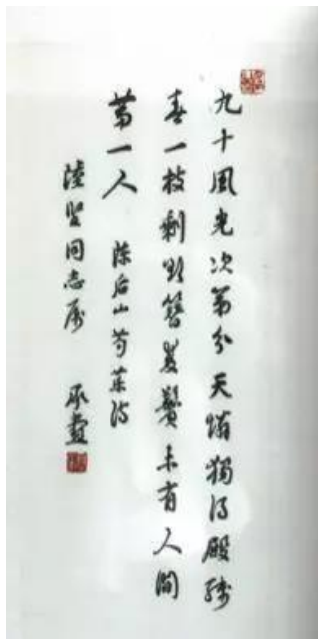 九十風光次第分天憐獨得殿殘
春一枝剩欲簪雙鬢未有人間
第一人 陳后山芍藥詩
陸堅同志屬 承燾